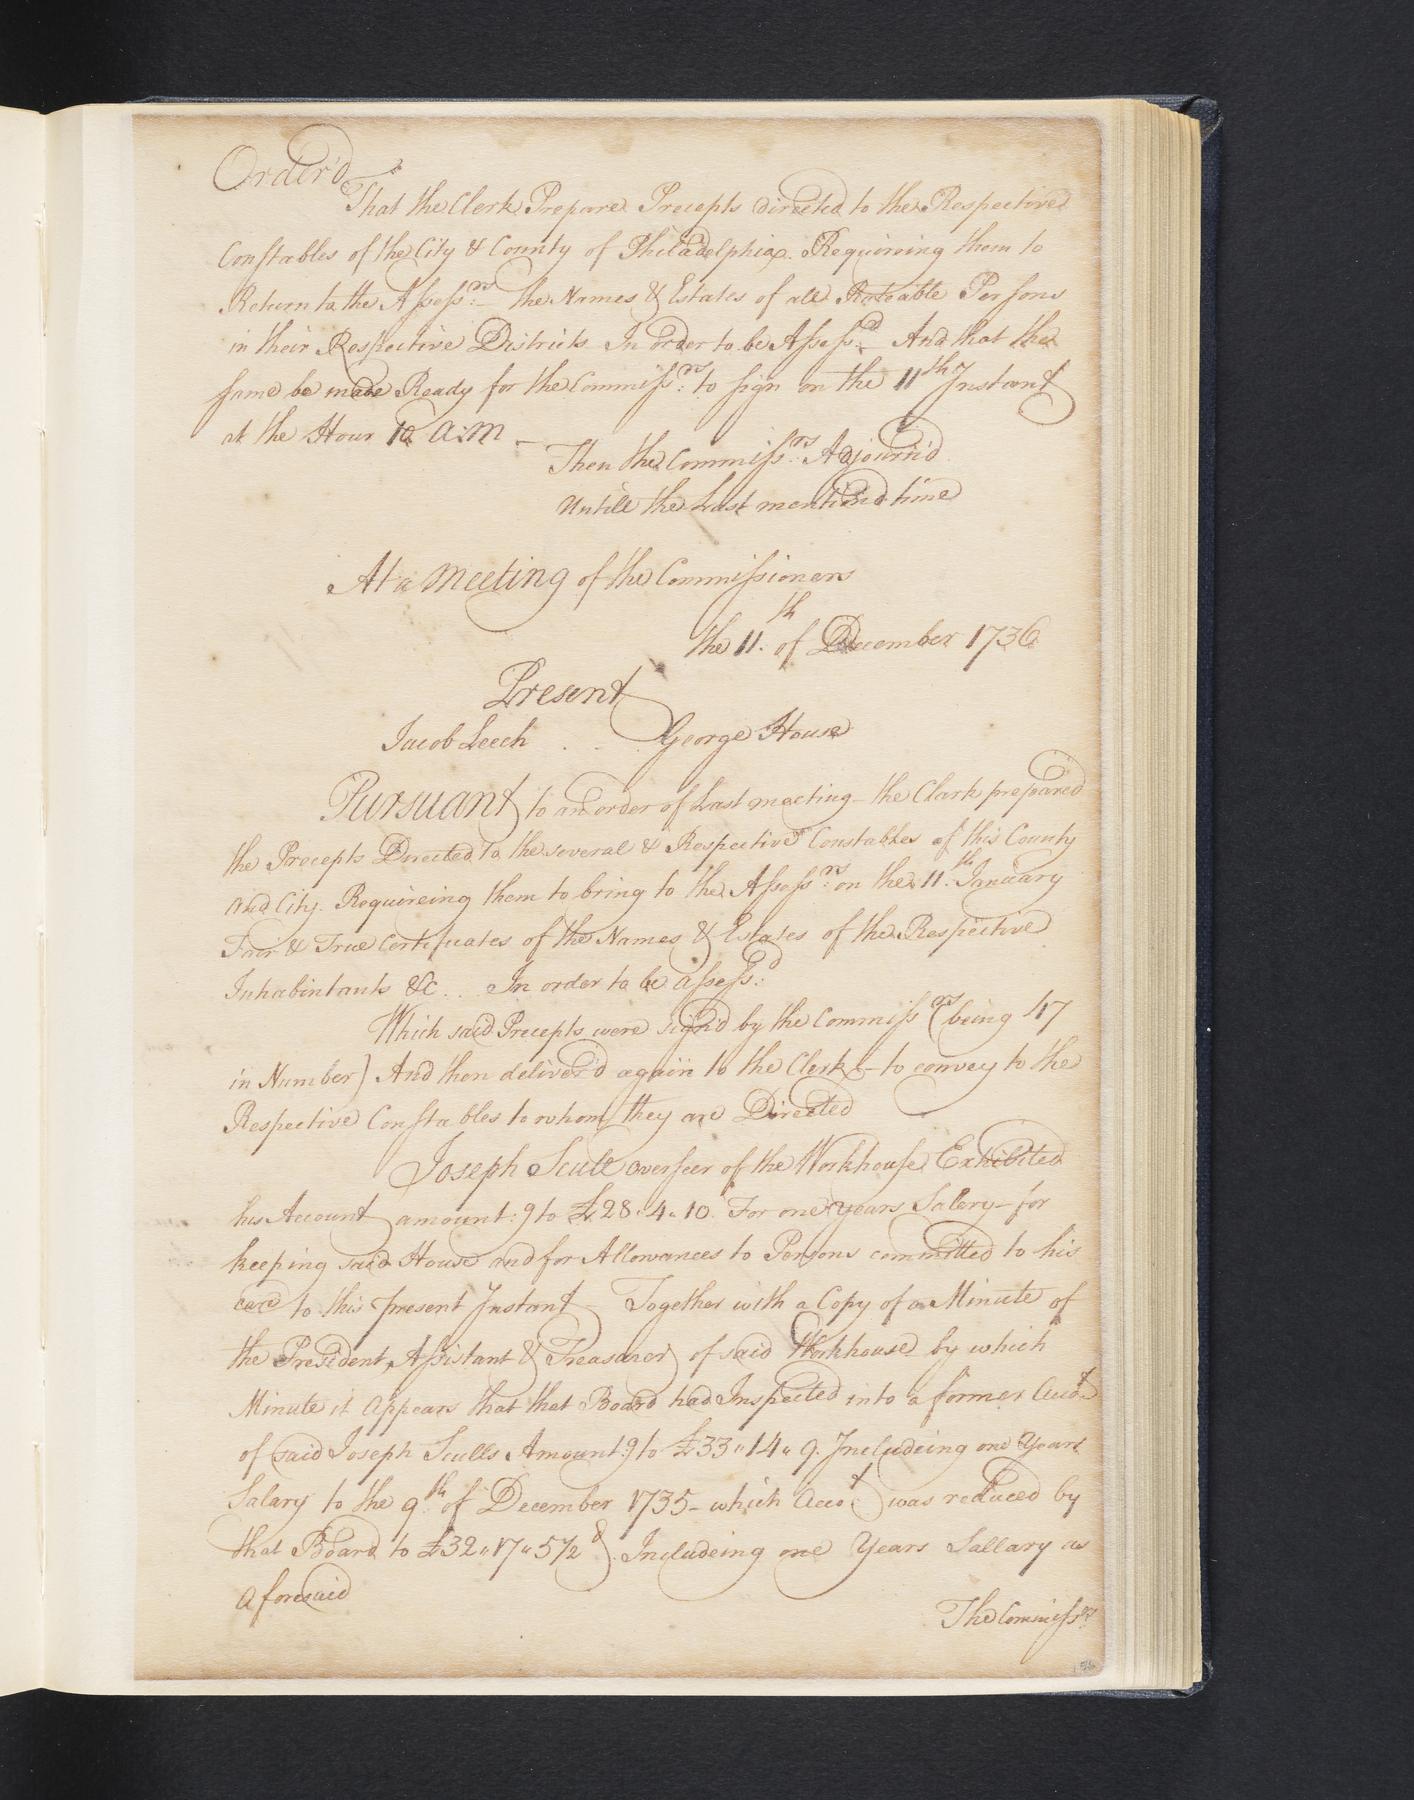 Order'd
That the Clerk Prepare Precepts directed to the Respective
Constables of the City & County of Philadelphia. Requireing them to
Return to the Assess:rs the Names & Estates of all Rateable Persons
in their Respective Districts In order to be Assess:d And that the
same be made Ready for the Commiss:rs to sign on the 11th Instant
at the Hour 10 A:M –
Then the Commiss:rs Adjourn'd
Untill the Last mention'd time
At a Meeting of the Commissioners
the 11.th of December 1736
Present
Jacob Leech . . . George House
Pursuant to an order of Last meeting – the Clark prepared
the Precepts Directed to the several & Respective Constables of this County
and City. Requireing them to bring to the Assess:rs on the 11.th January
Fair & True Certificates of the Names & Estates of the Respective
Inhabintants &c . . In order to be assess:d
Which said Precepts were sign'd by the Commiss:rs (being 47
in Number) And then deliver'd again to the Clerk – to convey to the
Respective Constables to whom they are Directed
Joseph Scull overseer of the Workhouse Exhibited
his Account amount:g to £28.4.10 For one years Salery – for
keeping said House and for Allowances to Persons committed to his
care to this present Instant Together with a Copy of a Minute of
the President, Assistant & Treasurer of said Workhouse by which
Minute it Appears that that Board had Inspected into a former Acco:t
of said Joseph Sculls Amount:g to £33"14"9. Includeing one Years
Salary to the 9.th of December 1735 – which Acco:t was reduced by
that Board to £32"17"5½ . Includeing one Years Sallary as
aforesaid
The Commiss:rs